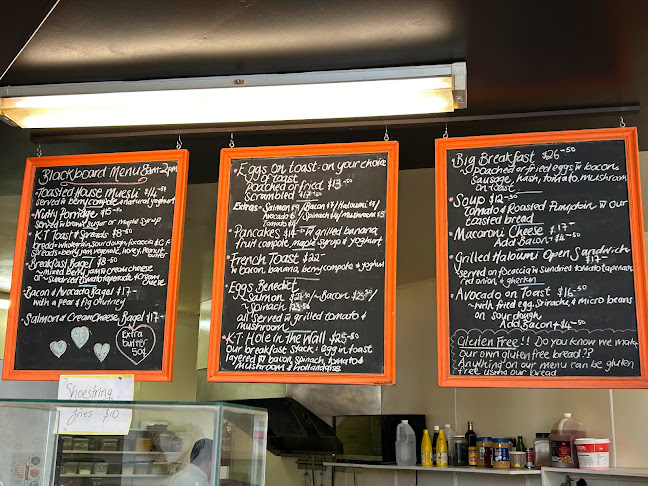 Blackboard Menu 8am-2pm
Toasted House Muesli $14-50
served w berry compote & natural yoghurt
Nutty Porridge $15-50
served w brown sugar or maple syrup
KT Toast & Spreads $8-50
bread = wholegrain sourdough, focaccia & G.F
spreads = berry jam, vegemite, honey, peanut butter
Breakfast Bagel $8-50
- mixed berry jam & cream cheese
or - sundried tomato tapenade & cream cheese
Bacon & Avocado Bagel $17-
with a pear & fig chutney
Salmon & Cream Cheese Bagel $17-
Extra
butter
50¢
Shoestring
fries $10
Eggs on toast - on your choice
of toast
Poached or fried $13-50
Scrambled
Extras - Salmon Bacon $7/ Haloumi $8/
Avocado Spinach Mushrooms $5
Tomato
Pancakes w grilled banana,
fruit compote, maple syrup & yoghurt
French Toast $22-
w bacon, banana, berry compote & yoghurt
Eggs Benedict
Salmon Bacon
Spinach
all served w grilled tomato &
mushroom
KT Hole in the Wall $25-50
Our breakfast stack: egg in toast
layered w bacon, spinach, tomato &
mushroom & hollandaise
Big Breakfast $26-50
- poached or fried eggs w bacon,
sausage, hash, tomato, mushroom
on toast
Soup $12-50
Tomato & Roasted Pumpkin w our
toasted bread
Macaroni Cheese $17-
Add Bacon
Grilled Haloumi Open Sandwich
$17-
served on focaccia w sundried tomato tapenade,
red onion, & gherkin
Avocado on Toast $16-50
- with fried egg, sriracha, & micro beans
on sourdough
Add Bacon + $4-50
Gluten Free!! Do you know we make
our own gluten free bread??
Anything on our menu can be gluten
free using our bread